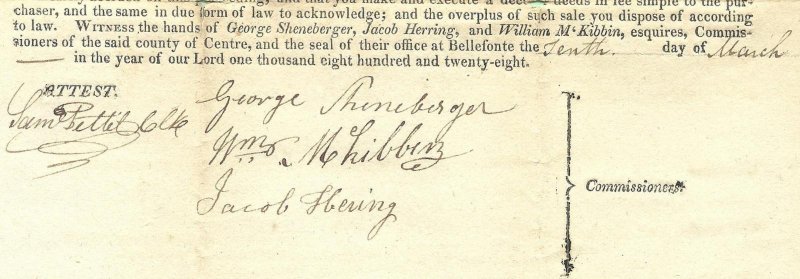 and that you make and execute a deed deeds in fee simple to the pur-
chaser, and the same in due form of law to acknowledge; and the overplus of such sale you dispose of according
to law. WITNESS the hands of George Sheneberger, Jacob Herring, and William M‘Kibbin, esquires, Commis-
sioners of the said county of Centre, and the seal of their office at Bellefonte the Tenth day of March
in the year of our Lord one thousand eight hundred and twenty-eight.
ATTEST.
Saml Pettit Clk
George Sheneberger
Wm McKibben
Jacob Hering
Commissioners.